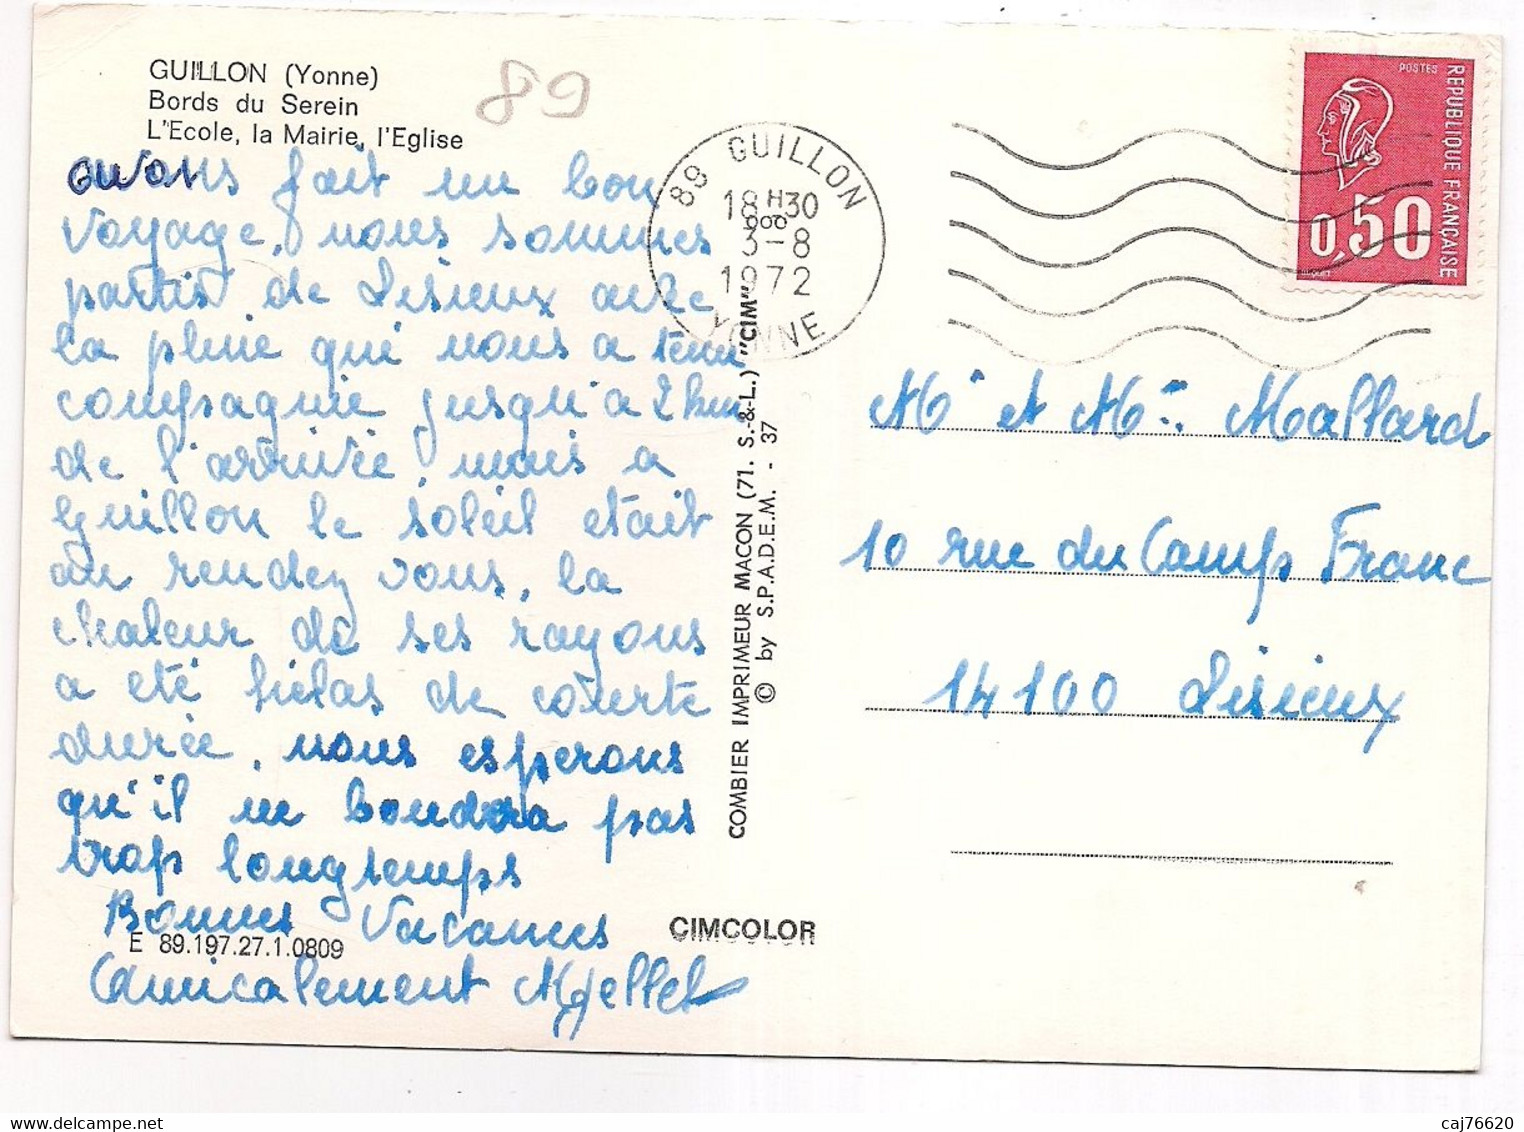 GUILLON (Yonne)
Bords du Serein
L'Ecole, la Mairie, l'Eglise
89
avons fait un bon
voyage, nous sommes
partis de Lisieux avec
la pluie qui nous a tenu
compagnie jusqu'a 2 km
de l'arrivée, mais a
Guillon le soleil etait
au rendez vous, la
chaleur de ses rayons
a eté helas de courte
durée, nous esperons
qu'il ne boudra pas
trop longtemps
Bonnes Vacances
Amicalement
E 89.197.27.1.0809
CIMCOLOR
COMBIER IMPRIMEUR MACON (71. S.-&-L.) "CIM"
© by S.P.A.D.E.M. - 37
89 GUILLON
18H30
3-8
1972
YONNE
POSTES
REPUBLIQUE FRANÇAISE
0,50
Mr et Mme Mallard
10 rue du Camp Franc
14100 Lisieux
caj76620